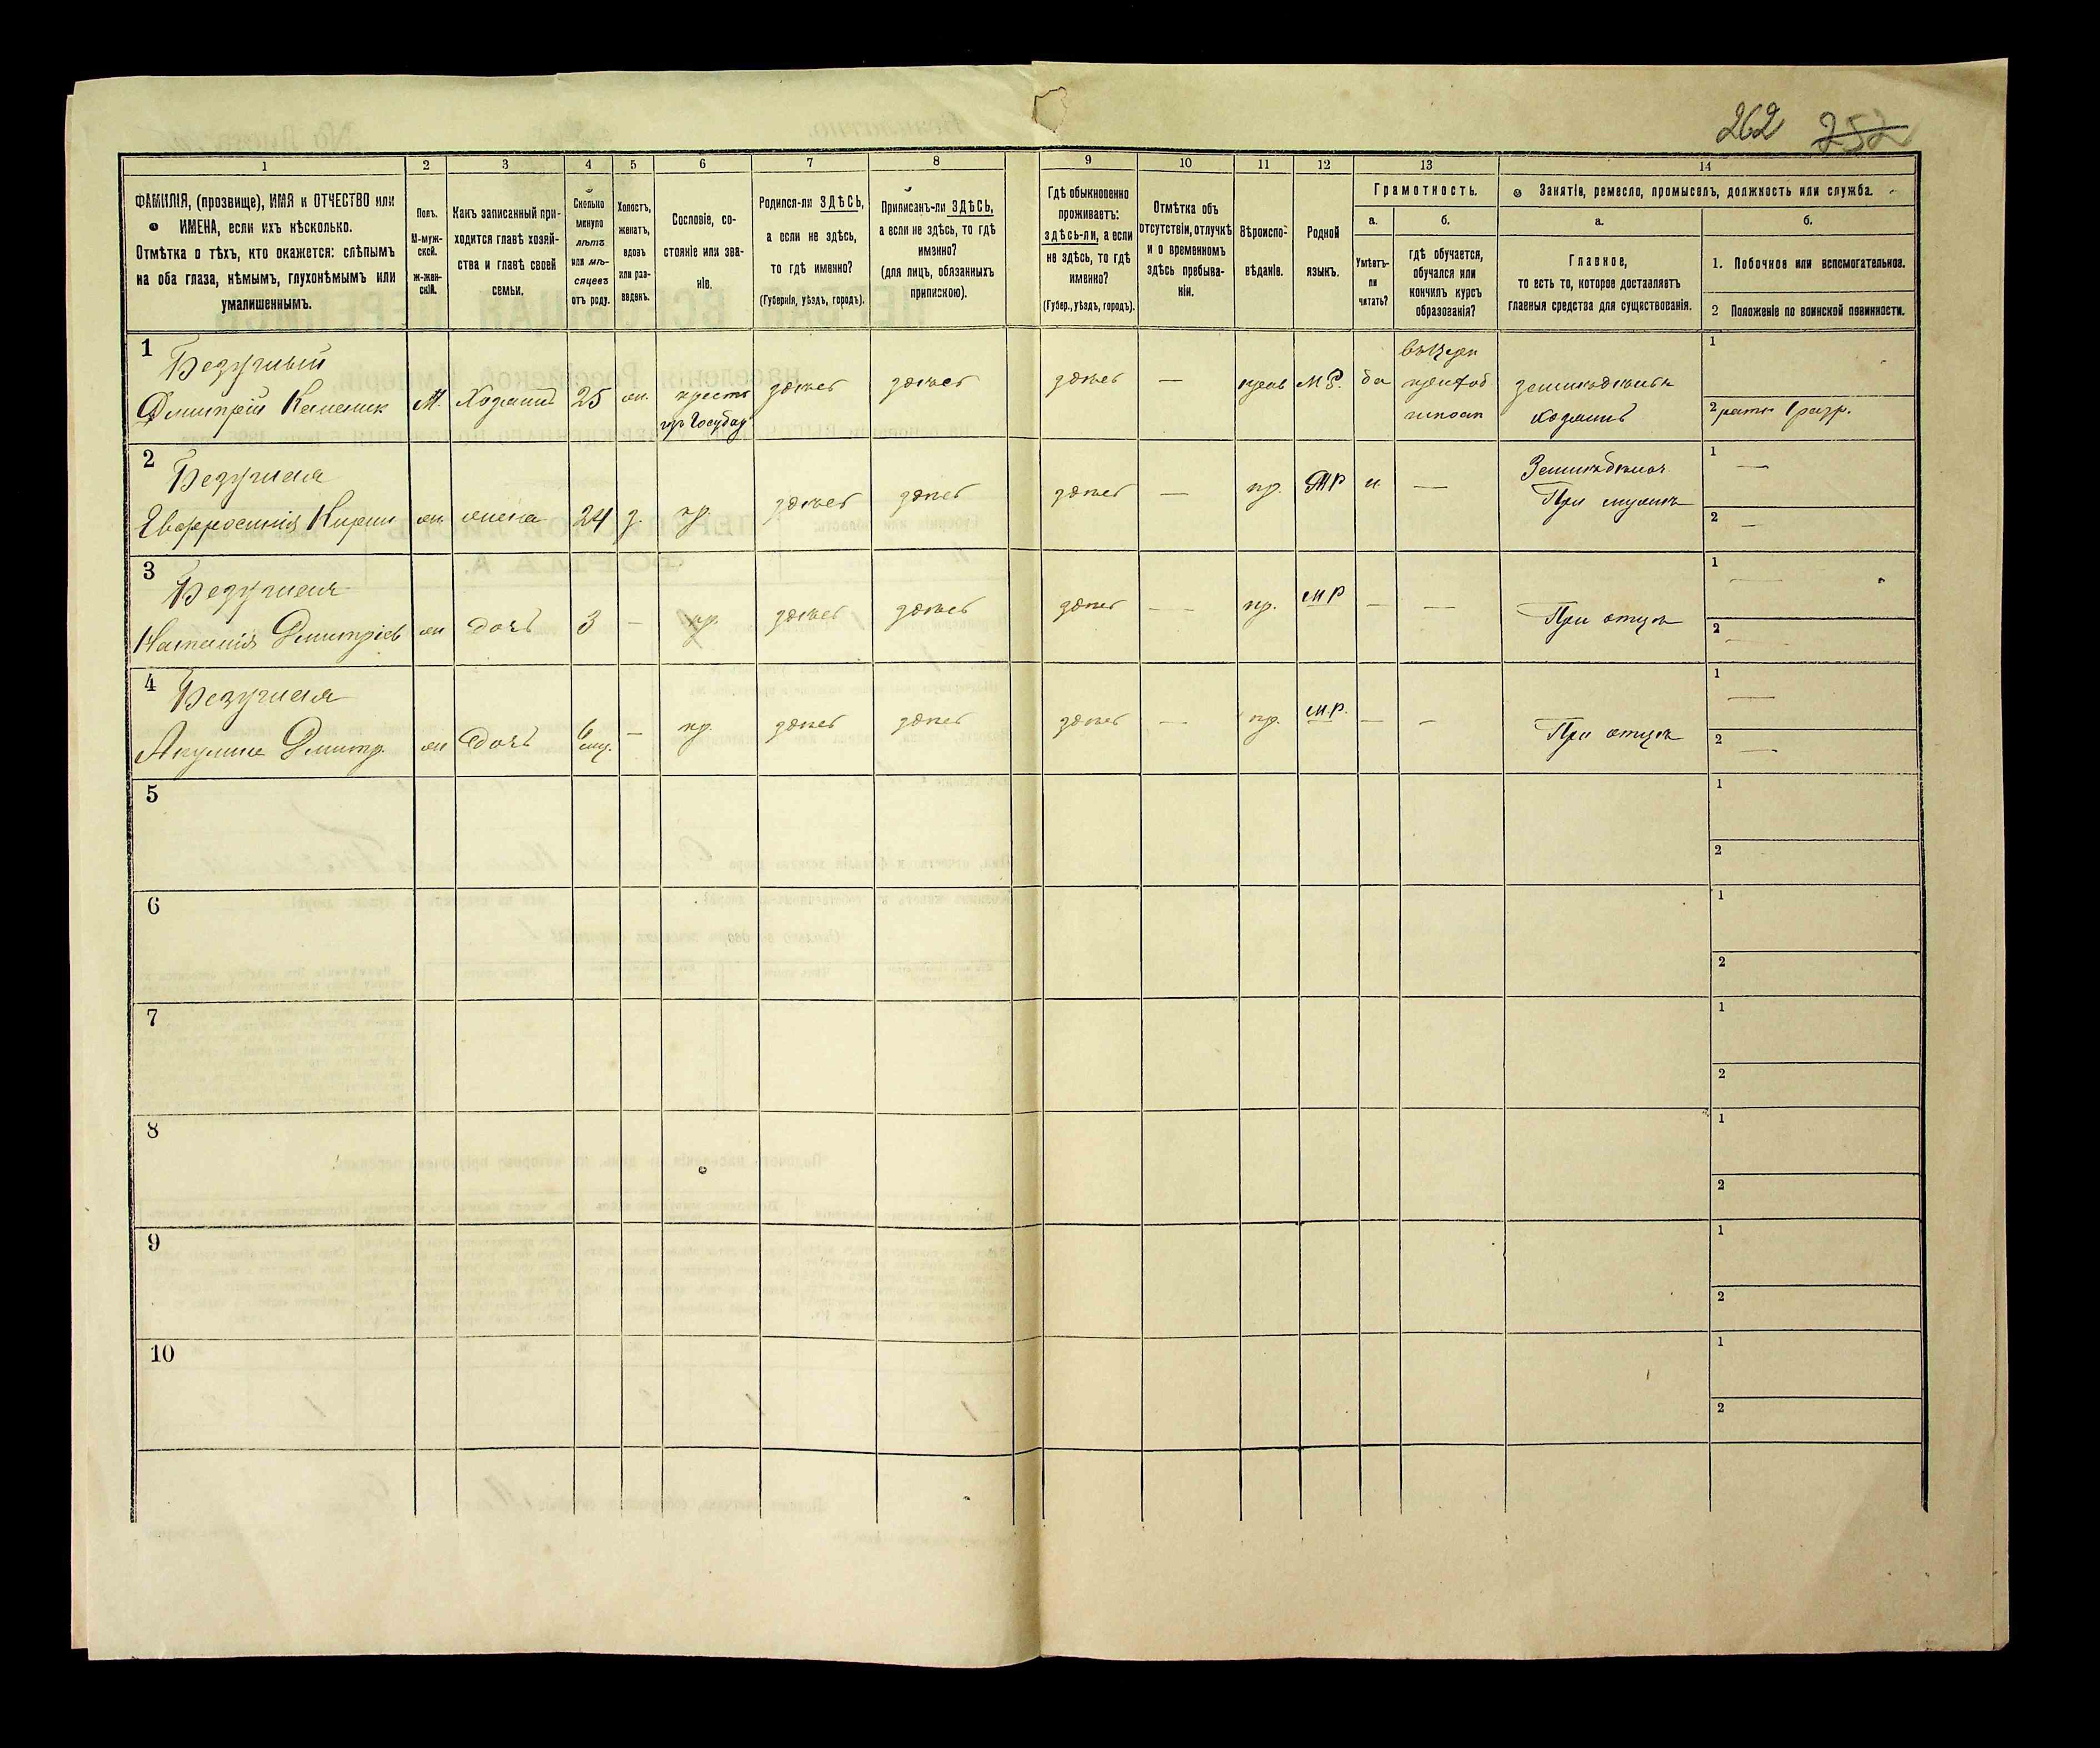 262 252
1 2 3 4 5 6 7 8 9 10 11 12 13 14
ФАМИЛІЯ, (прозвище), ИМЯ и ОТЧЕСТВО или
ИМЕНА, если ихъ нѣсколько.
Отмѣтка о тѣхъ, кто окажется: слѣпымъ
на оба глаза, нѣмымъ, глухонѣмымъ или
умалишеннымъ.
Полъ.
М-муж-
ской.
ж-жен-
скій.
Какъ записанный при-
ходится главѣ хозяй-
ства и главѣ своей
семьи.
Сколько
минуло
лѣтъ
или мѣ-
сяцевъ
отъ роду.
Холостъ,
женатъ,
вдовъ
или раз-
веденъ.
Сословіе, со-
стояніе или зва-
ніе.
Родился-ли ЗДѢСЬ,
а если не здѣсь,
то гдѣ именно?
(Губернія, уѣздъ, городъ).
Приписанъ-ли ЗДѢСЬ,
а если не здѣсь, то гдѣ
именно?
(для лицъ, обязанныхъ
припискою).
Гдѣ обыкновенно
проживаетъ:
здѣсь-ли, а если
не здѣсь, то гдѣ
именно?
(Губер., уѣздъ, городъ).
Отмѣтка объ
отсутствіи, отлучкѣ
и о временномъ
здѣсь пребыва-
ніи.
Вѣроиспо-
вѣданіе.
Родной
языкъ.
Грамотность.
а. б.
Умѣетъ-
ли
читать?
гдѣ обучается,
обучался или
кончилъ курсъ
образованія?
Занятіе, ремесло, промыселъ, должность или служба.
а. б.
Главное,
то есть то, которое доставляетъ
главныя средства для существованія.
1. Побочное или вспомогательное.
2 Положеніе по воинской повинности.
1 Безручный
Дмитрій
М. Хозяинъ 25 ж. крестъ здѣсь здѣсь здѣсь — прав М.Р. да
земледѣлецъ
хозяинъ
1
2 ратн. 1 разр.
2 Безручная
Евфросинія
ж. жена 24 з. кр. здѣсь здѣсь здѣсь — пр. МР н. —
При мужѣ
1 —
2 —
3 Безручная
Наталія Дмитріев
ж дочь 3 — кр. здѣсь здѣсь здѣсь — пр. МР — — При отцѣ
1 —
2 —
4 Безручная
Акулина Дмитр.
ж дочь 6 мѣ. — кр. здѣсь здѣсь здѣсь — пр. М.Р. — — При отцѣ
1 —
2 —
5 1
2
6 1
2
7 1
2
8 1
2
9 1
2
10 1
2